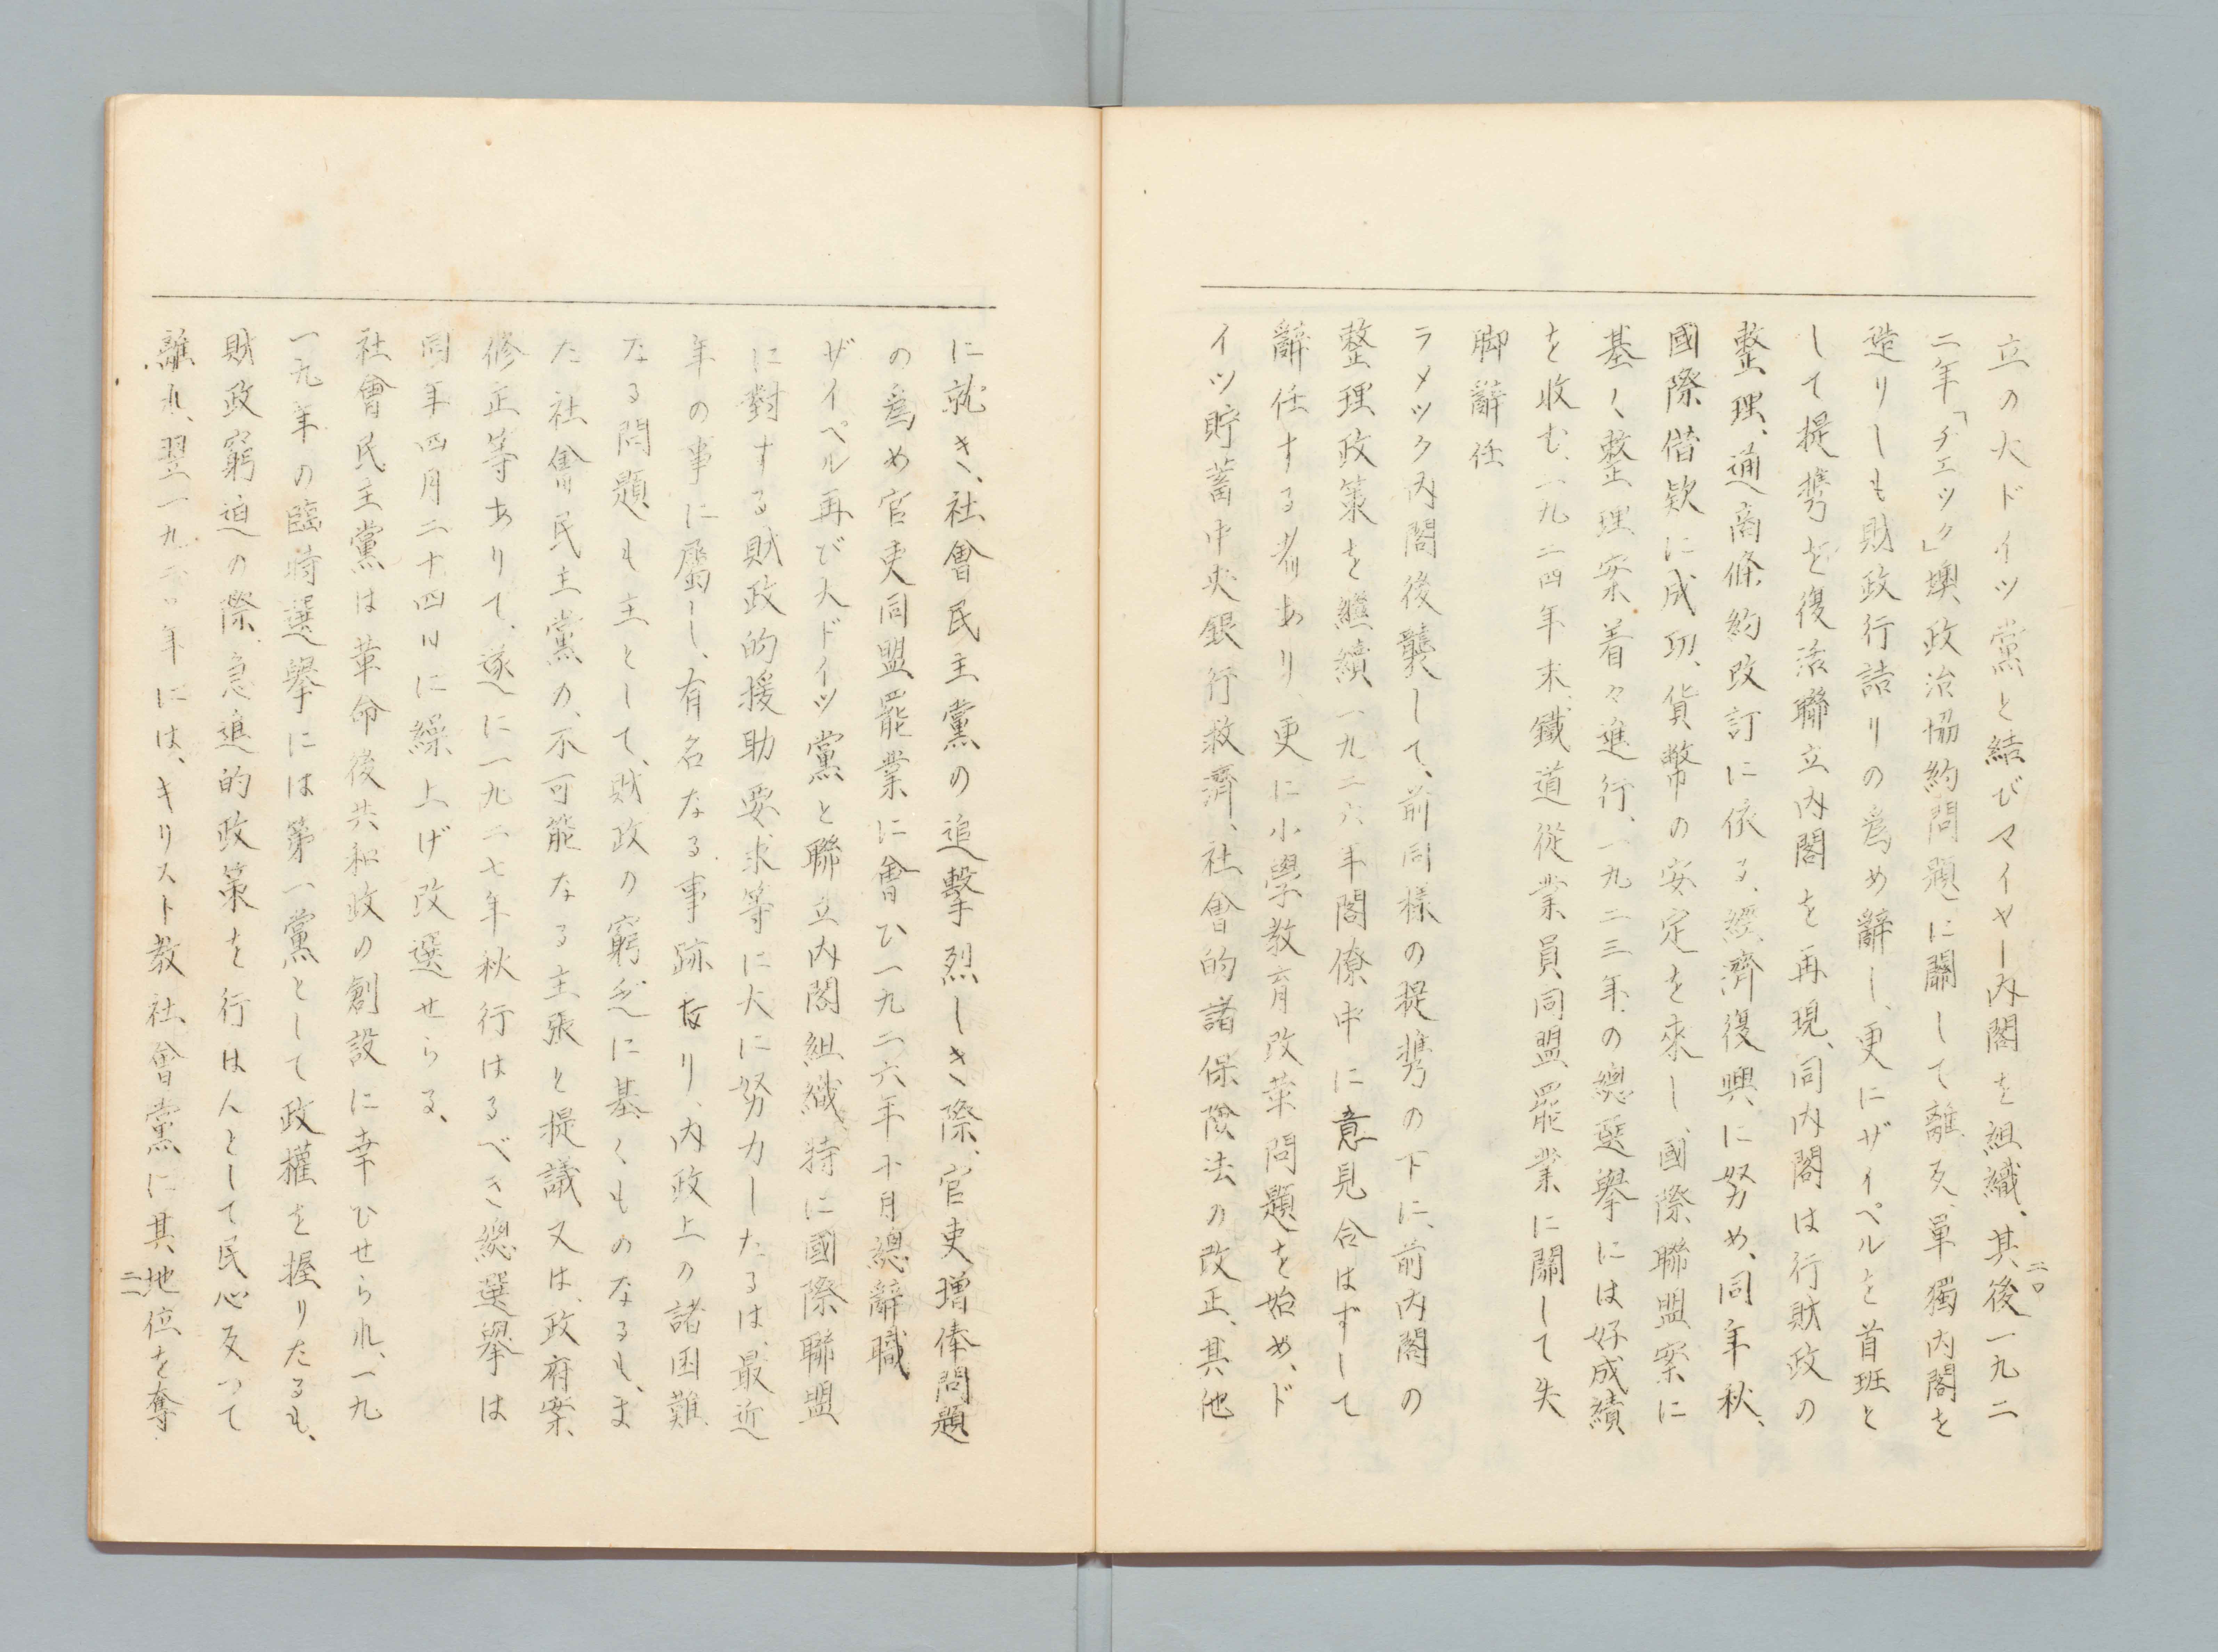 立の大ドイツ黨と結びマイヤー内閣を組織、其後一九二
二年「チェック」墺政治協約問題に關して離反、單獨内閣を
造りしも財政行詰りの爲め辭し、更にザイペルを首班と
して提携を復活聯立内閣を再現、同内閣は行財政の
整理、通商條約改訂に依る、經濟復興に努め、同年秋、
國際借欵に成功、貨幣の安定を來し、國際聯盟案に
基く整理案着々進行、一九二三年の總選擧には好成績
を收む、一九二四年末、鐵道從業員同盟罷業に關して失
脚辭任
ラメック内閣後襲して、前同樣の提携の下に、前内閣の
整理政策を繼續一九二六年閣僚中に意見合はずして
辭任する者あり、更に小學教育改革問題を始め、ド
イツ貯蓄中央銀行救濟、社會的諸保險法の改正、其他
二〇
に就き、社會民主黨の追擊烈しき際、官吏增俸問題
の爲め官吏同盟罷業に會ひ一九二六年十月總辭職
ザイペル再び大ドイツ黨と聯立内閣組織、特に國際聯盟
に對する財政的援助要求等に大に努力したるは、最近
年の事に屬し、有名なる事跡なり、内政上の諸困難
なる問題も主として、財政の窮乏に基くものなるも、ま
た社會民主黨の、不可能なる主張と提議又は、政府案
修正等ありて、遂に一九二七年秋行はるべき總選擧は
同年四月二十四日に繰上げ改選せらる、
社會民主黨は革命後共和政の創設に幸ひせられ、一九
一九年の臨時選擧には第一黨として政權を握りたるも、
財政窮迫の際、急進的政策を行は人として民心反つて
離れ、翌一九二〇年には、キリスト教社會黨に其地位を奪
二一